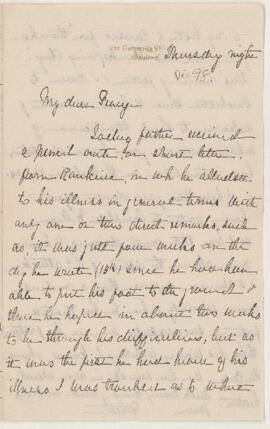 University St
Montreal
Thursday night
Dec 98.
My dear George
Today father received
a pencil note, or short letter
from Rankine, in wh he alluded
to his illness in general terms with
only one or two direct remarks, such
as, it was just four weeks on the
day he wrote (15th) since he had been
able to put his foot to the ground &
that he hoped in about two weeks
to be through his difficulties, but as
it was the first he had heard of his
illness I was troubled as to what